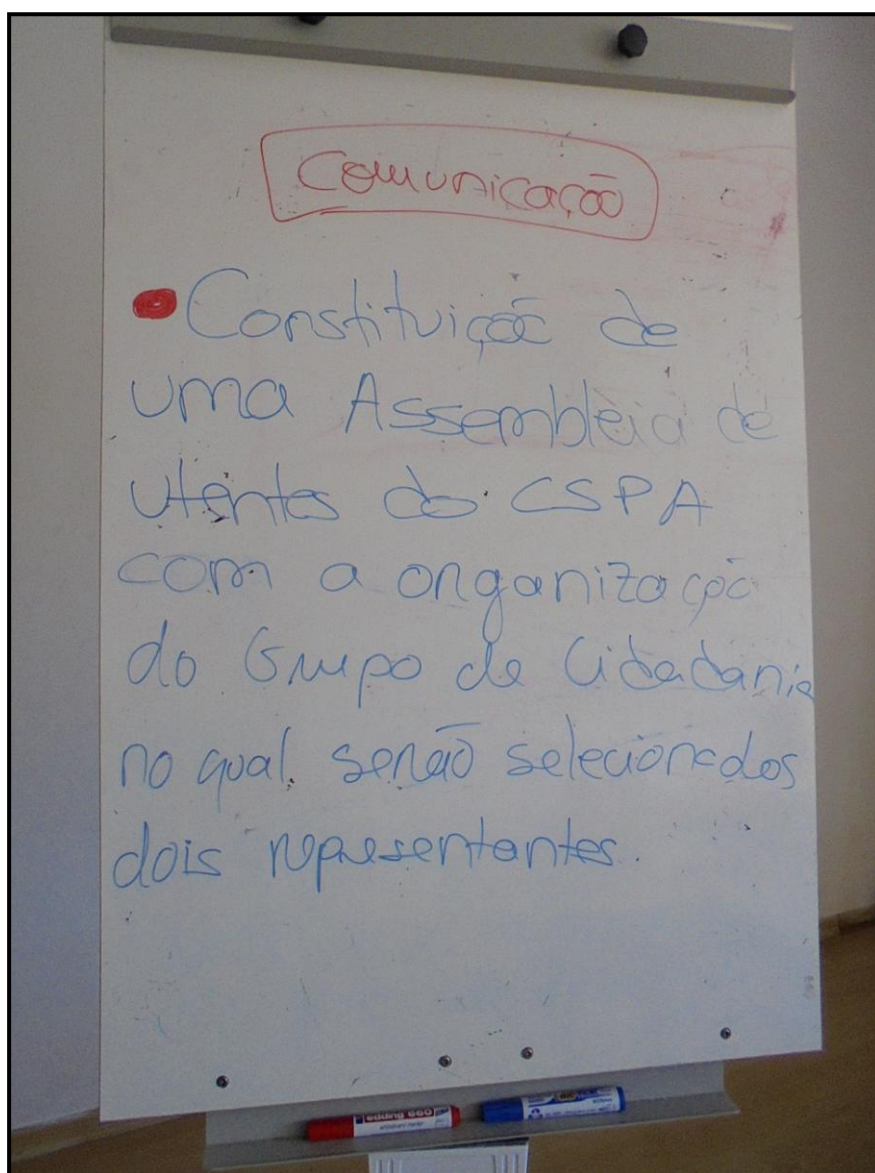 Comunicação
Constituição de
uma Assembleia de
utentes do CSPA
com a organização
do Grupo de Cidadania
no qual serão selecionados
dois representantes.
edding 660